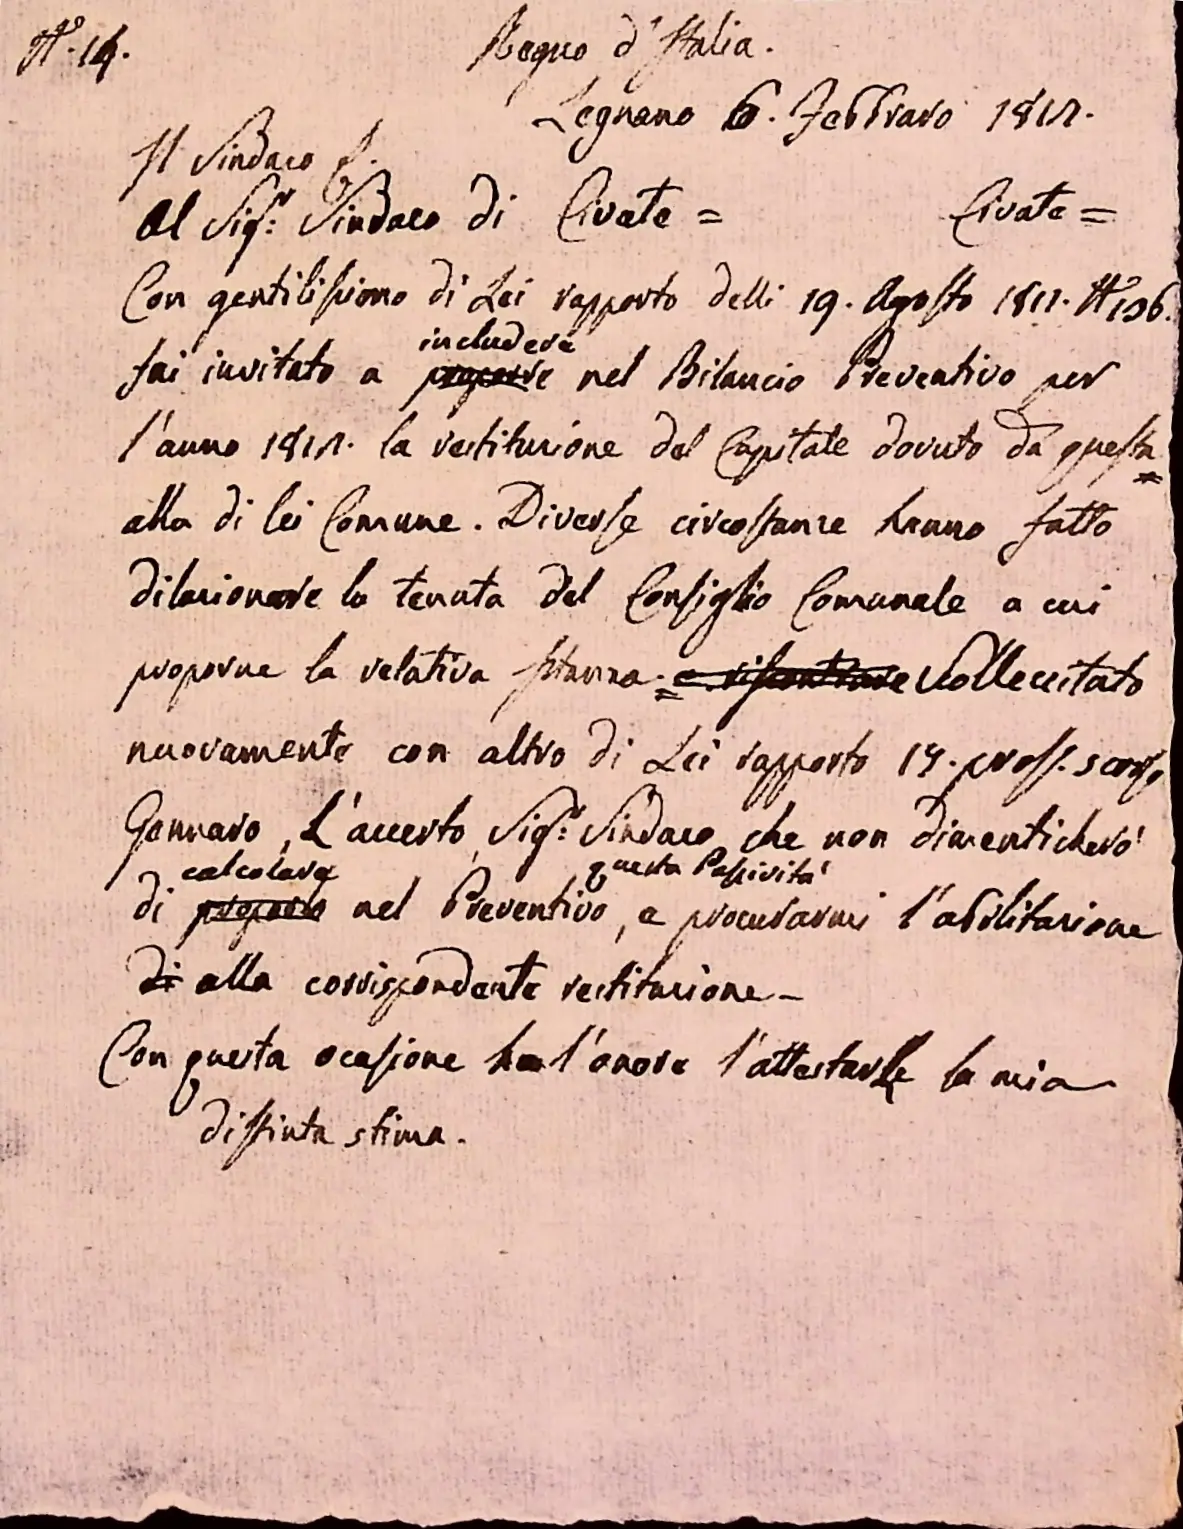 N.° 14.
Regno d'Italia.
Legnano 6. Febbraro 1812.
Il Sindaco f.
Al Sig.r Sindaco di Civate = Civate =
Con gentilissimo di Lei rapporto delli 19. Agosto 1811. N.° 196.
includere
fui invitato a proporre nel Bilancio Preventivo per
l'anno 1812. la restituzione del Capitale dovuto da questa
alla di lei Comune. Diverse circostanze hanno fatto
dilazionare la tenuta del Consiglio Comunale a cui
proporne la relativa istanza. = e riscontrare Sollecitato
nuovamente con altro di Lei rapporto 14. pross. scorso
Gennaro, L'accerto, Sig.r Sindaco, che non dimenticherò
calcolare questa Passività
di proporre nel Preventivo, e procurarmi l'abilitazione
di alla corrispondente restituzione -
Con questa ocasione ho l'onore l'attestarLe la mia
distinta stima.